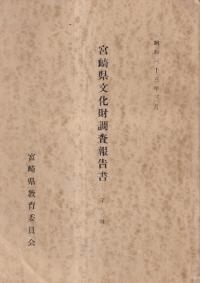 昭和三十三年三月
宮崎県文化財調査報告書
宮崎県教育委員会